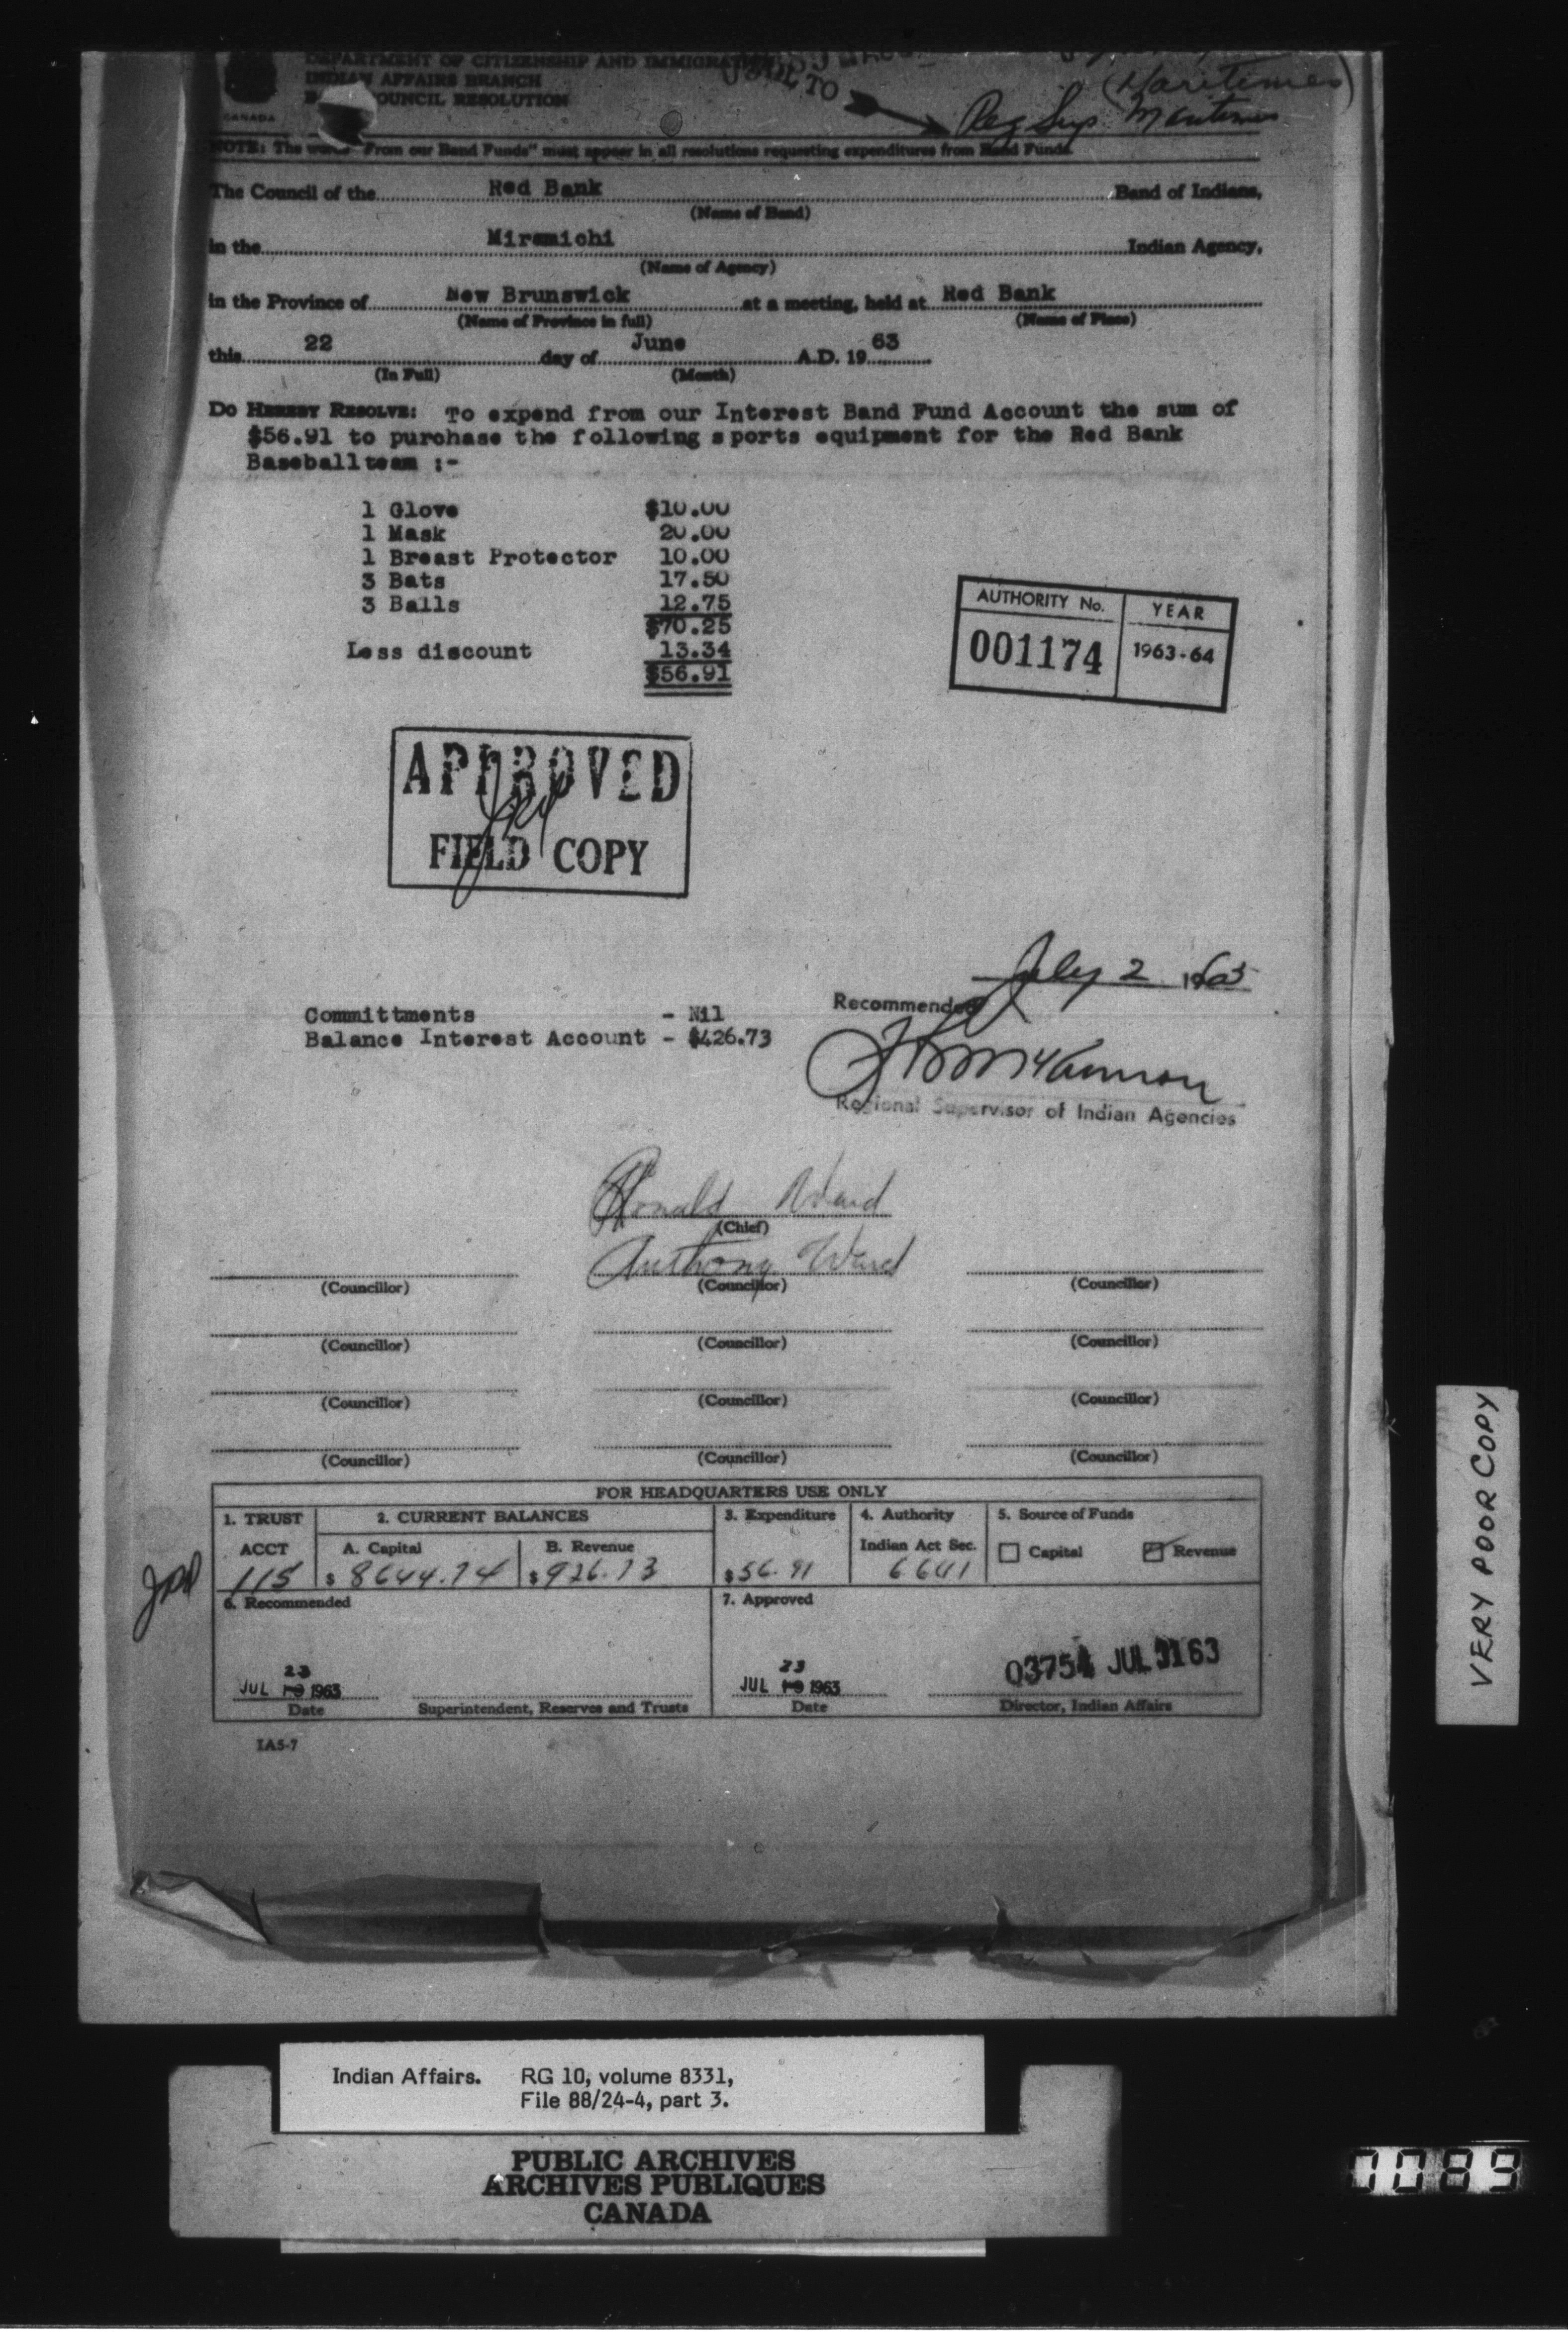 DEPARTMENT OF CITIZENSHIP AND IMMIGRATION
INDIAN AFFAIRS BRANCH
COUNCIL RESOLUTION
CANADA
TO
(Maritimes)
Reg Sup. Maritimes
NOTE: The words "From our Band Funds" must appear in all resolutions requesting expenditures from Band Funds.
The Council of the Red Bank Band of Indians,
(Name of Band)
in the Miramichi Indian Agency,
(Name of Agency)
in the Province of New Brunswick at a meeting, held at Red Bank
(Name of Province in full) (Name of Place)
this 22 day of June A.D. 19 63
(In Full) (Month)
DO HEREBY RESOLVE: To expend from our Interest Band Fund Account the sum of
$56.91 to purchase the following sports equipment for the Red Bank
Baseballteam :-
1 Glove $10.00
1 Mask 20.00
1 Breast Protector 10.00
3 Bats 17.50
3 Balls 12.75
$70.25
Less discount 13.34
$56.91
AUTHORITY No. YEAR
001174 1963-64
APPROVED
FIELD COPY
July 2 1963
Recommended
Committments - Nil
Balance Interest Account - $426.73
Regional Supervisor of Indian Agencies
Ronald Ward
(Chief)
Anthony Ward
(Councillor) (Councillor) (Councillor)
(Councillor) (Councillor) (Councillor)
(Councillor) (Councillor) (Councillor)
(Councillor) (Councillor) (Councillor)
FOR HEADQUARTERS USE ONLY
1. TRUST 2. CURRENT BALANCES 3. Expenditure 4. Authority 5. Source of Funds
ACCT A. Capital B. Revenue Indian Act Sec. Capital Revenue
115 $ 8644.74 $ 926.73 $56.91 66(1)
6. Recommended 7. Approved
23 23
JUL 19 1963 JUL 19 1963 03754 JUL 31 63
Date Superintendent, Reserves and Trusts Date Director, Indian Affairs
IA5-7
VERY POOR COPY
Indian Affairs. RG 10, volume 8331,
File 88/24-4, part 3.
PUBLIC ARCHIVES
ARCHIVES PUBLIQUES
CANADA